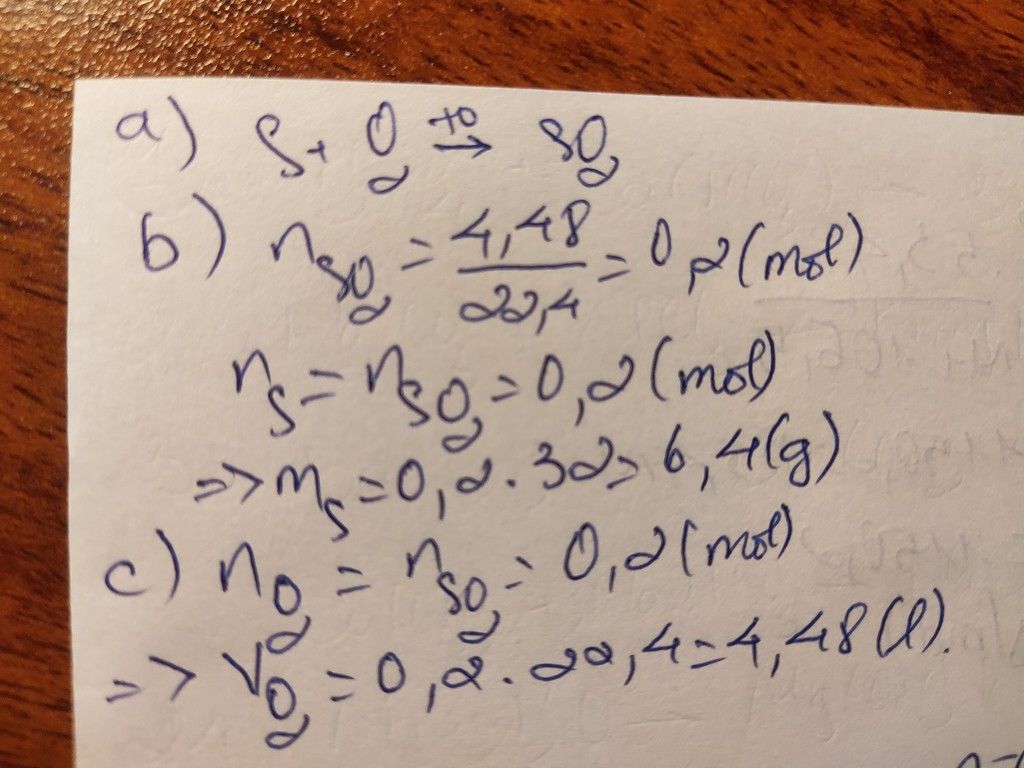 a) S + O₂ t0→ SO₂
b) nSO₂ = 4,48/22,4 = 0,2 (mol)
nS = nSO₂ = 0,2 (mol)
=> mS = 0,2 . 32 = 6,4 (g)
c) nO₂ = nSO₂ = 0,2 (mol)
=> VO₂ = 0,2 . 22,4 = 4,48 (l).